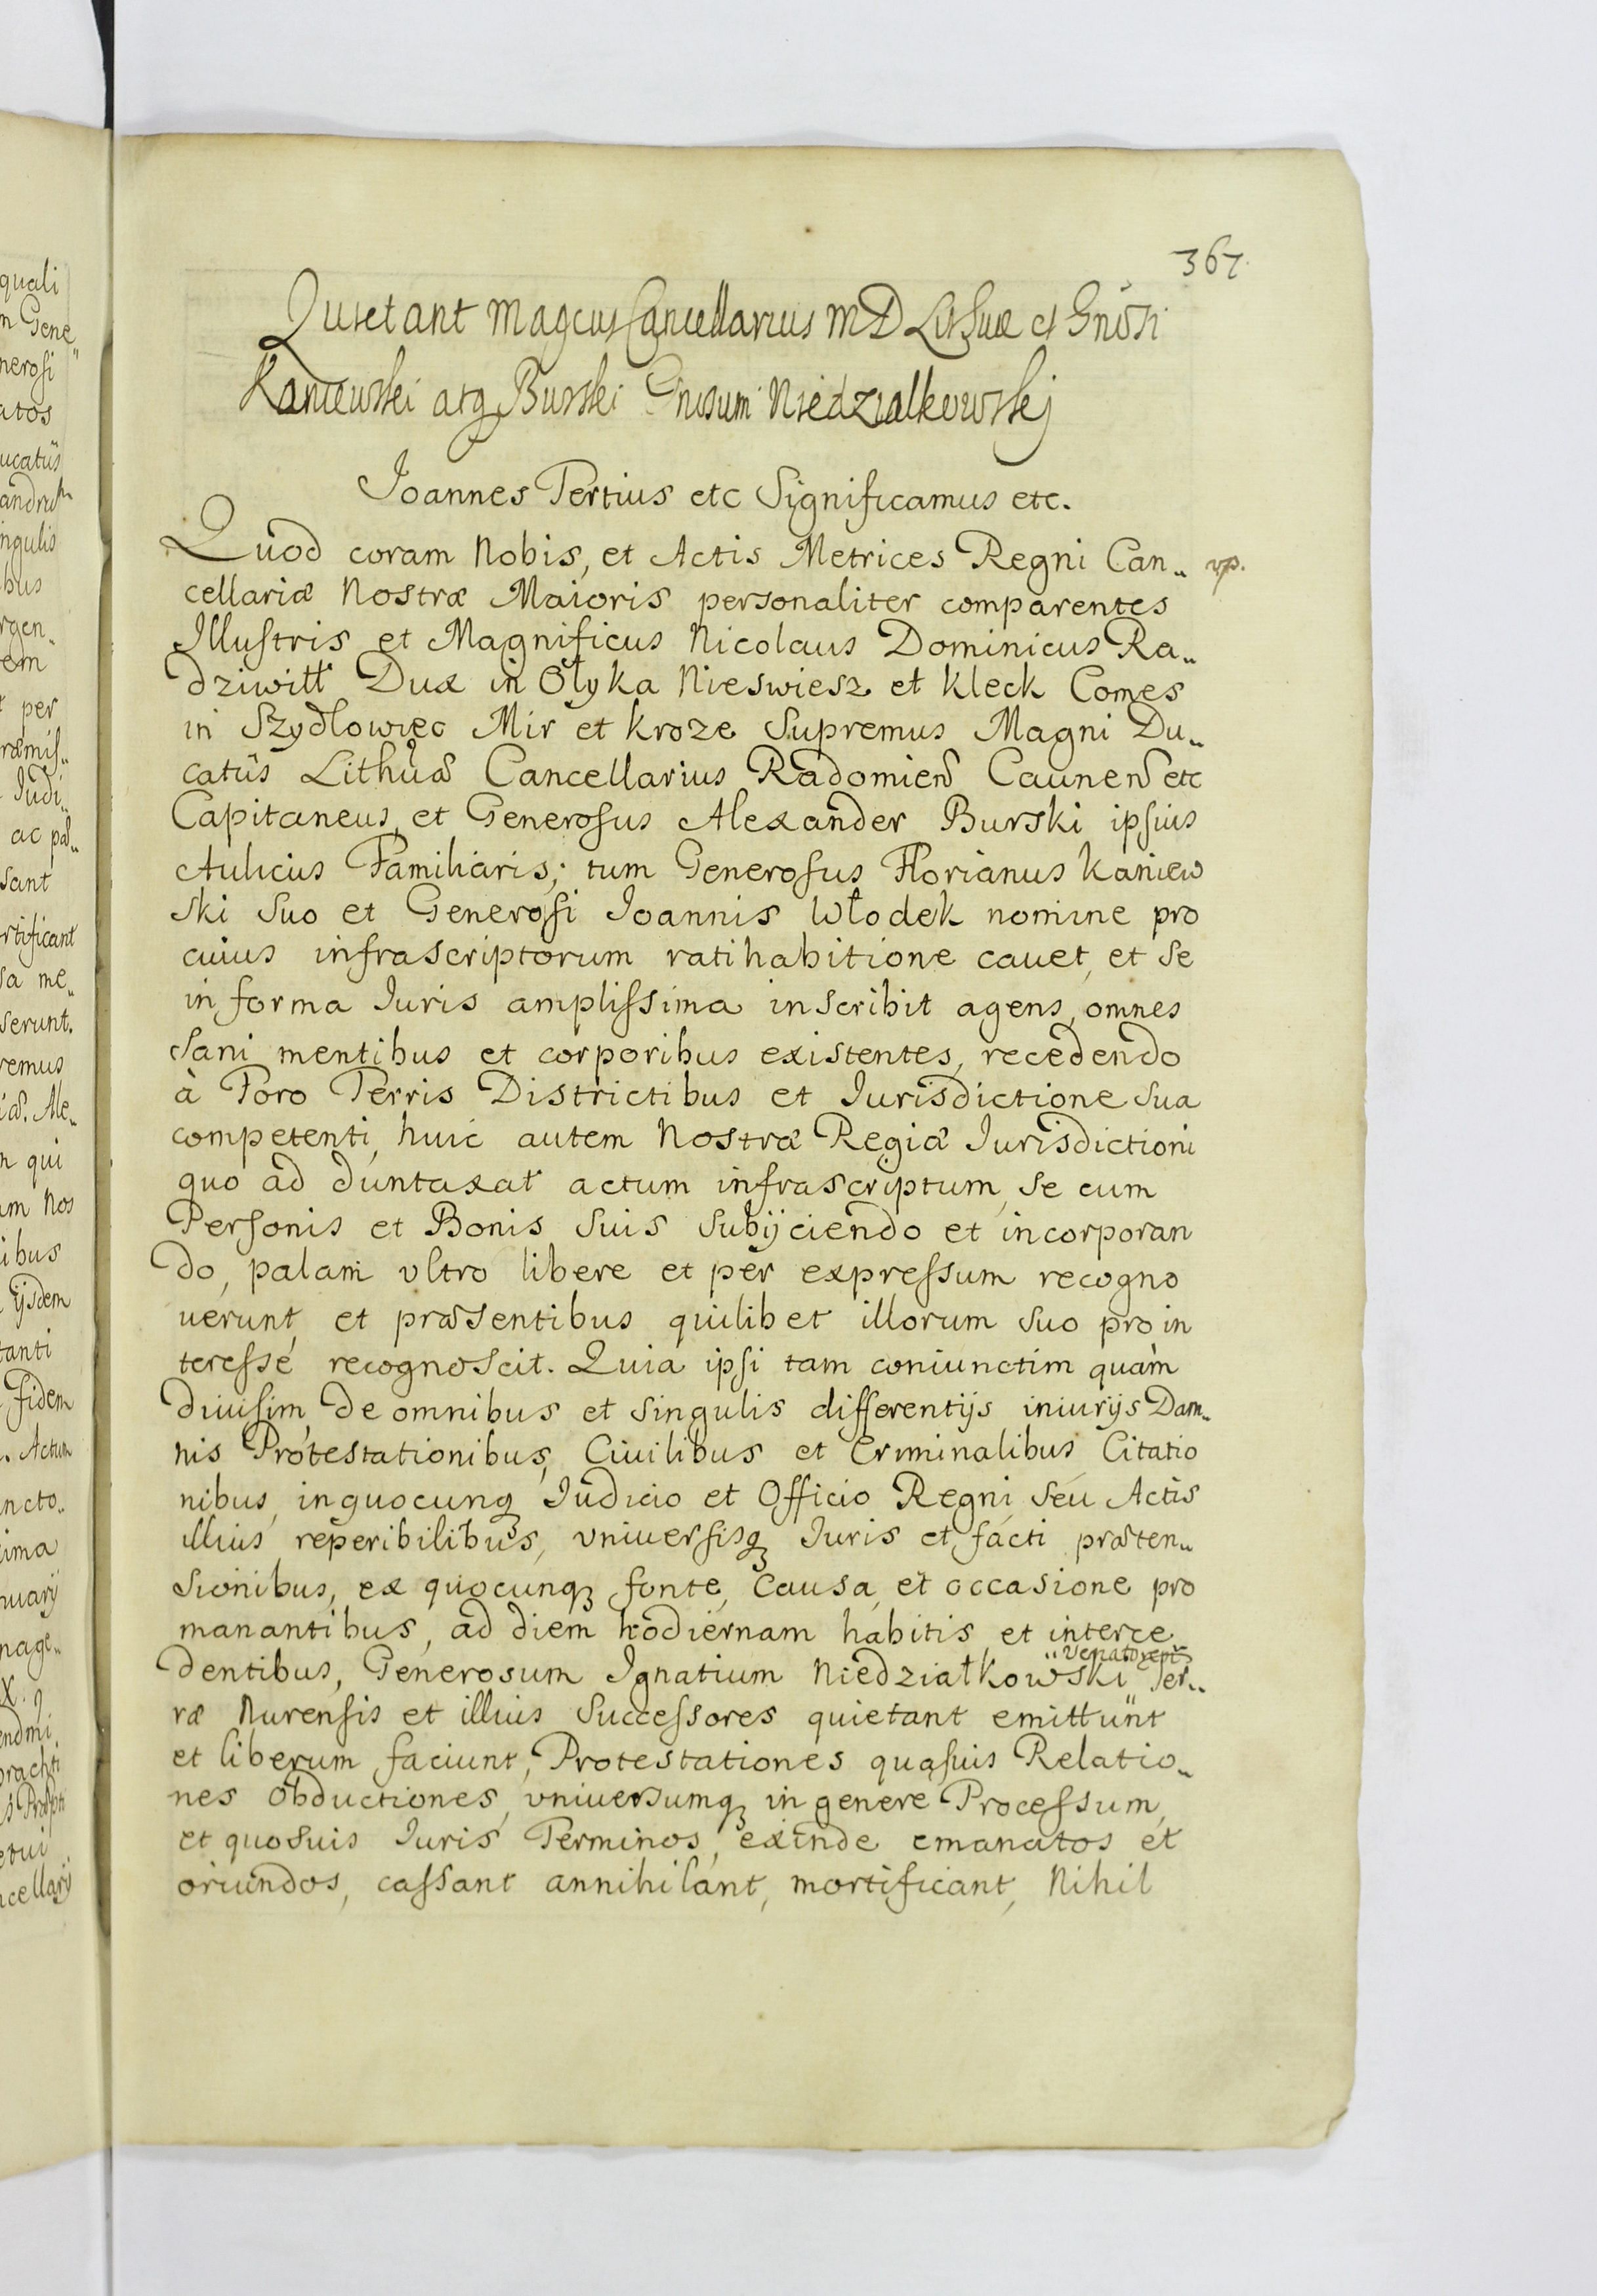 quali
n Gene„
nerosi
atos
ucatûs
andrum
ingulis
bus
rgen„
em
t per
ræmis„
Iudi„
ac pal„
sant
rtificant
sa me„
serunt.
remus
Ale„
n qui
am Nos
ibus
ijsdem
tanti
fidem
. Actum
ncto„
ima
nuarij
nage„
X.
endmi
s Præpti
ncellarij
367.
Quietant Magcus Cancellarius MD Lithuæ et Gnosi
Kaniewski atq Burski Gnosum Niedzialkowskj
Ioannes Tertius etc Significamus etc.
Quod coram Nobis, et Actis Metrices Regni Can„ vp.
cellariæ Nostræ Maioris personaliter comparentes
Illustris et Magnificus Nicolaus Dominicus Ra„
dziwiłł Dux in Ołyka Nieswiesz et Kleck Comes
in Szydłowiec Mir et Kroze Supremus Magni Du„
catûs Lithuæ Cancellarius Radomien Caunen etc
Capitaneus, et Generosus Alexander Burski ipsius
Aulicus Familiaris; tum Generosus Florianus Kaniew
ski suo et Generosi Ioannis Włodek nomine pro
cuius infrascriptorum ratihabitione cauet, et se
in forma Iuris amplissima inscribit agens, omnes
sani mentibus et corporibus existentes, recedendo
à Foro Terris Districtibus et Iurisdictione sua
competenti, huic autem Nostræ Regiæ Iurisdictioni
quo ad duntaxat actum infrascriptum, se cum
Personis et Bonis suis subijciendo et incorporan
do, palam vltro libere et per expressum recogno
uerunt, et præsentibus quilibet illorum suo pro in
teresse recognoscit. Quia ipsi tam coniunctim quàm
diuisim, de omnibus et singulis differentijs iniurijs Dam„
nis Protestationibus, Ciuilibus et Criminalibus Citatio
nibus, inquocunq Iudicio et Officio Regni, seu Actis
illius reperibilibus, vniuersisq Iuris et facti præten„
sionibus, ex quocunq fonte, causa, et occasione pro
manantibus, ad diem hodiernam habitis, et interce
Venatorem
dentibus, Generosum Ignatium Niedziałkowski Ter„
ræ Nurensis et illius Successores quietant emittunt
et liberum faciunt, Protestationes quasuis Relatio„
nes Obductiones, vniuersumq in genere Processum,
et quosuis Iuris Terminos, exinde emanatos et
oriundos, cassant annihilant, mortificant, Nihil